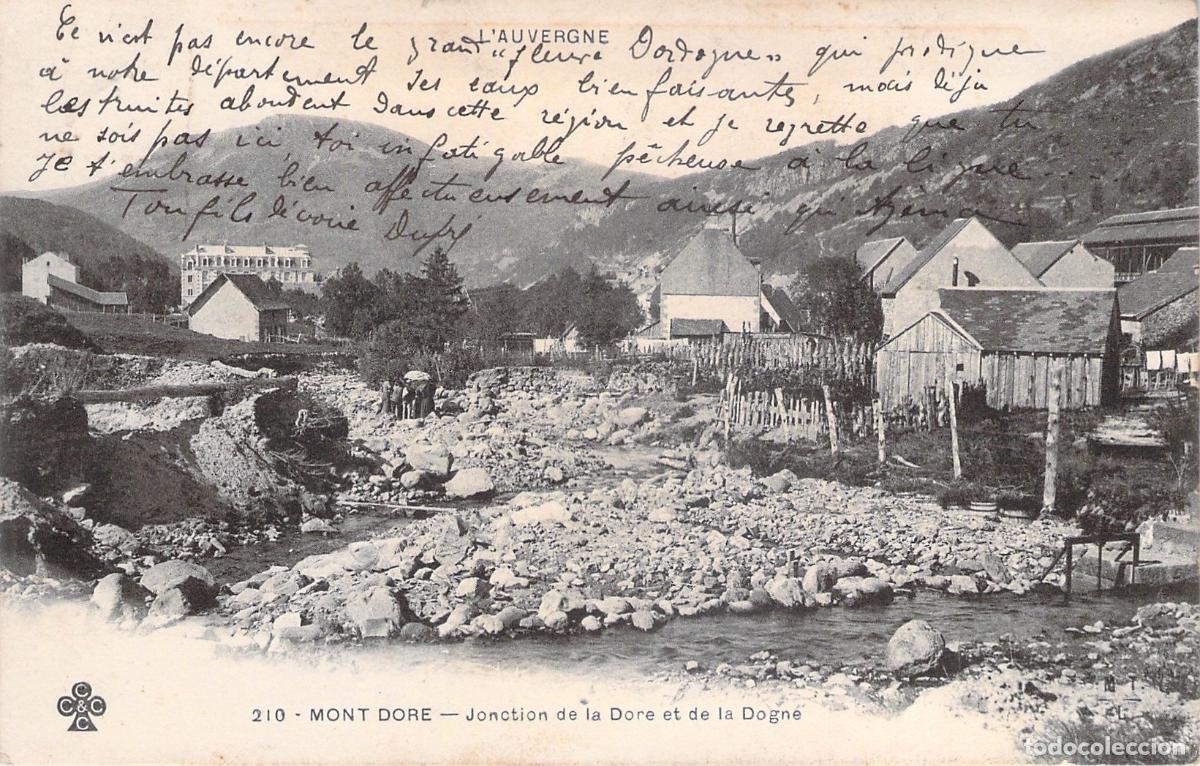 L'AUVERGNE
Ce n'est pas encore le grand "fleuve Dordogne" qui prodigue
à notre département ses eaux bienfaisantes, mais déjà
les truites abondent dans cette région et je regrette que tu
ne sois pas ici, toi infatigable pêcheuse à la ligne....
Je t'embrasse bien affectueusement ainsi qu'
Ton fils dévoué
C C & C C
210 - MONT DORE — Jonction de la Dore et de la Dogne
todocoleccion